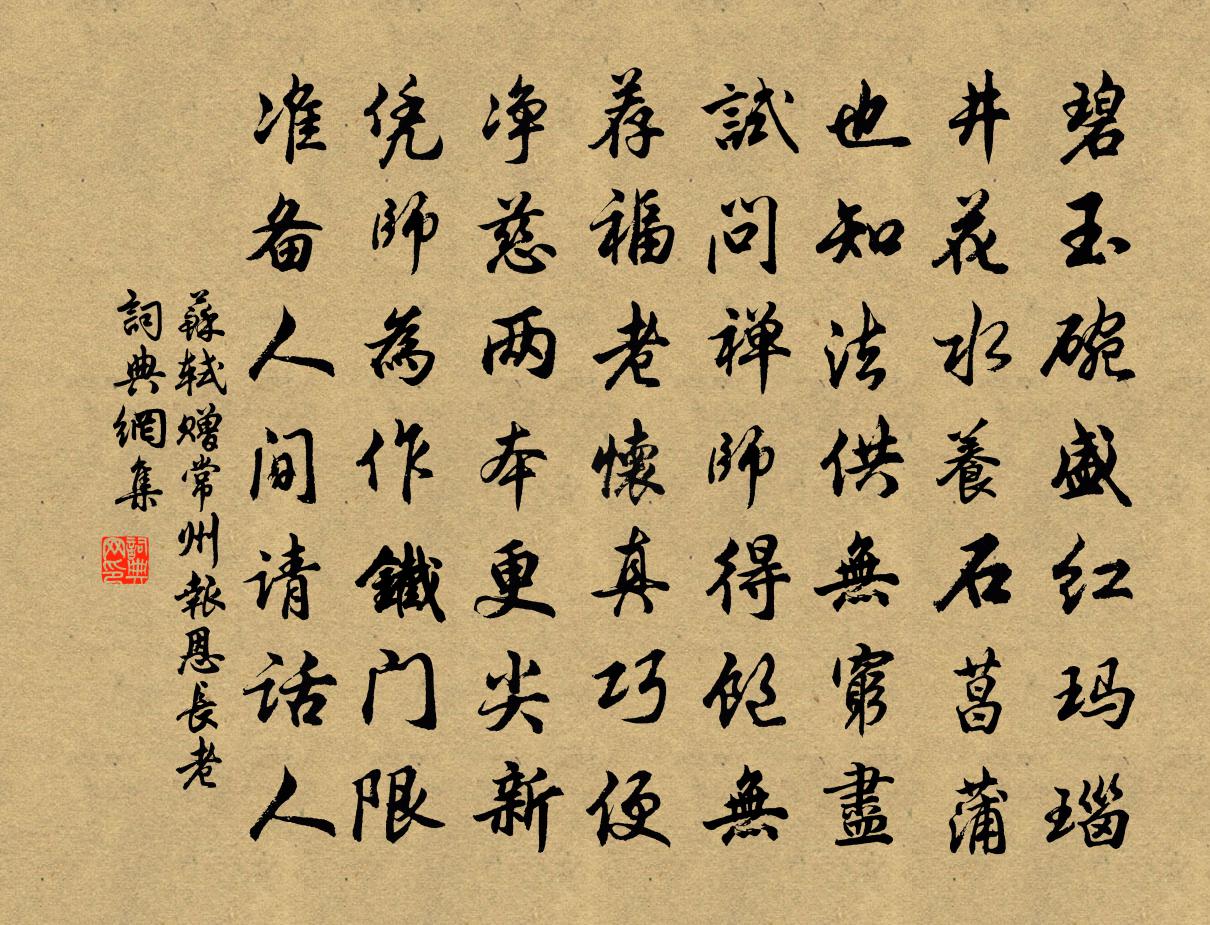 碧玉碗盛红玛瑙
井花水養石菖蒲
也知法供無窮盡
試問禅師得飽無
荐福老懷真巧便
净慈两本更尖新
凭師為作鐵门限
准备人间请话人
蘇轼赠常州報恩長老
詞典網集
詞典网印